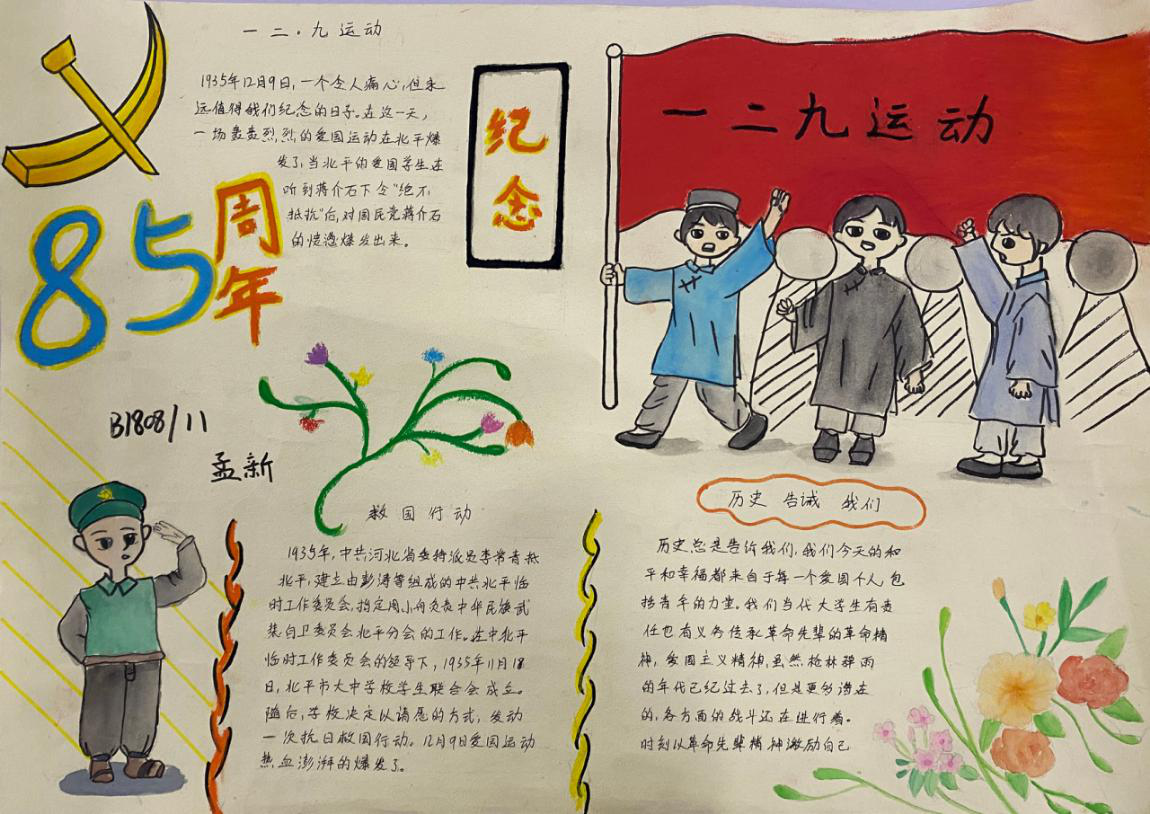 一二·九运动
1935年12月9日,一个令人痛心,但永
远值得我们纪念的日子。在这一天,
一场轰轰烈烈的爱国运动在北平爆
发了,当北平的爱国学生在
听到蒋介石下令“绝不
抵抗”后,对国民党蒋介石
的愤懑爆发出来。
纪
念
85周年
一二九运动
B1808/11
孟新
救国行动
1935年,中共河北省委特派员李常青抵
北平,建立由彭涛等组成的中共北平临
时工作委员会,指定周小舟负责中华民族武
装自卫委员会北平分会的工作。在中北平
临时工作委员会的领导下,1935年11月18
日,北平市大中学校学生联合会成立。
随后,学校决定以请愿的方式,发动
一次抗日救国行动。12月9日爱国运动
热血澎湃的爆发了。
历史 告诫 我们
历史总是告诉我们,我们今天的和
平和幸福都来自于每一个爱国个人,包
括青年的力量。我们当代大学生有责
任也有义务传承革命先辈的革命精
神,爱国主义精神,虽然枪林弹雨
的年代已经过去了,但是更多潜在
的,各方面的战斗还在进行着。
时刻以革命先辈精神激励自己